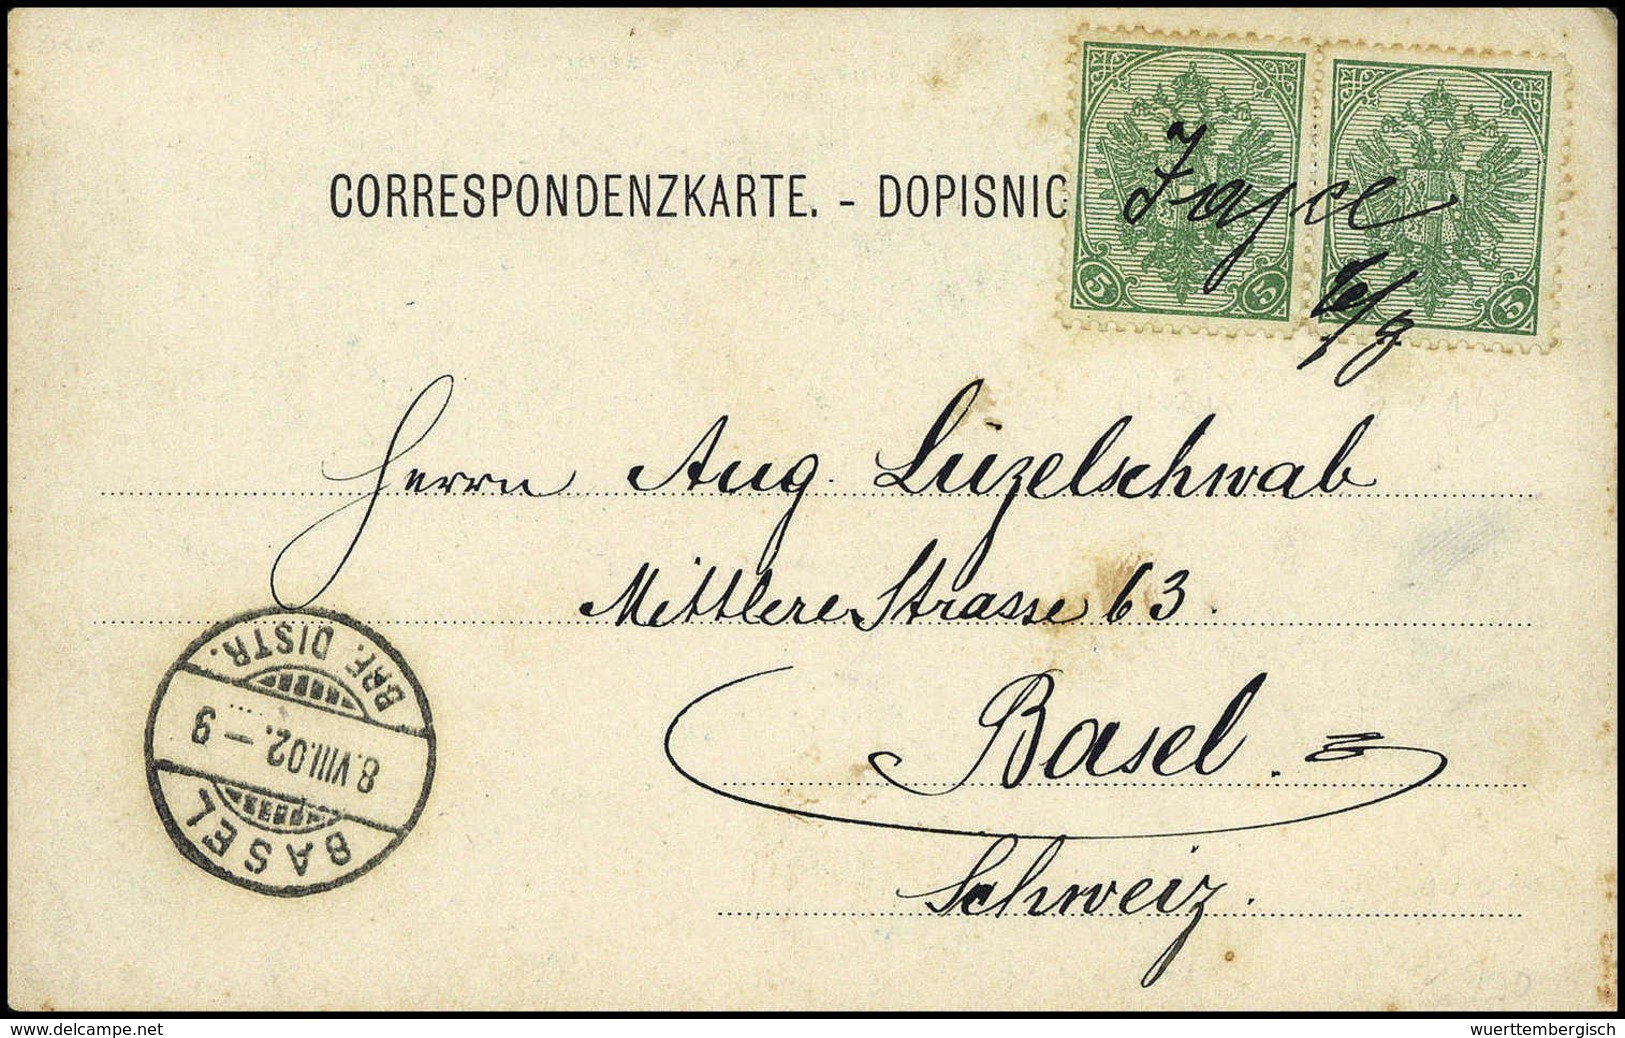 CORRESPONDENZKARTE. - DOPISNIC
Jajce
6/8
5 5 5
Herrn Aug. Luzelschwab
Mittlere Strasse 63.
Basel.
Schweiz.
BRF. DISTR.
8.VIII.02.-9
BASEL
© www.delcampe.net
wuerttembergisch